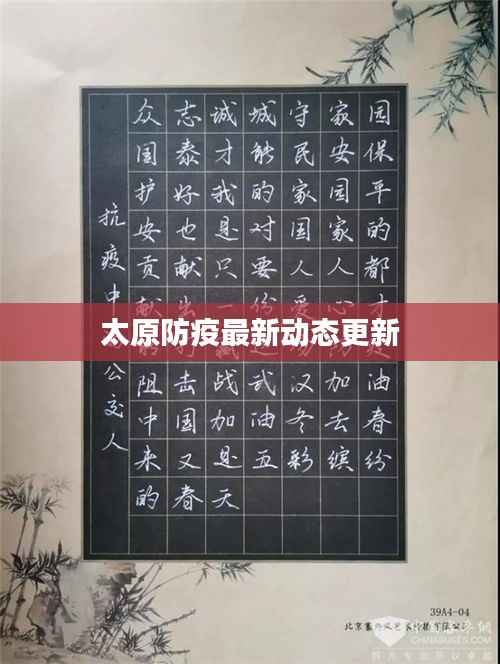 众志诚城守家园
国泰才能民安保
护好我的家园平
安也是对国家的
贡献只要人人都
献出一份爱心才
太原防疫最新动态更新
阻击战武汉加油
中国加油冬去春
来又是五彩缤纷
的春天
抗疫中
公交人
39A4-04
北京
有限公司